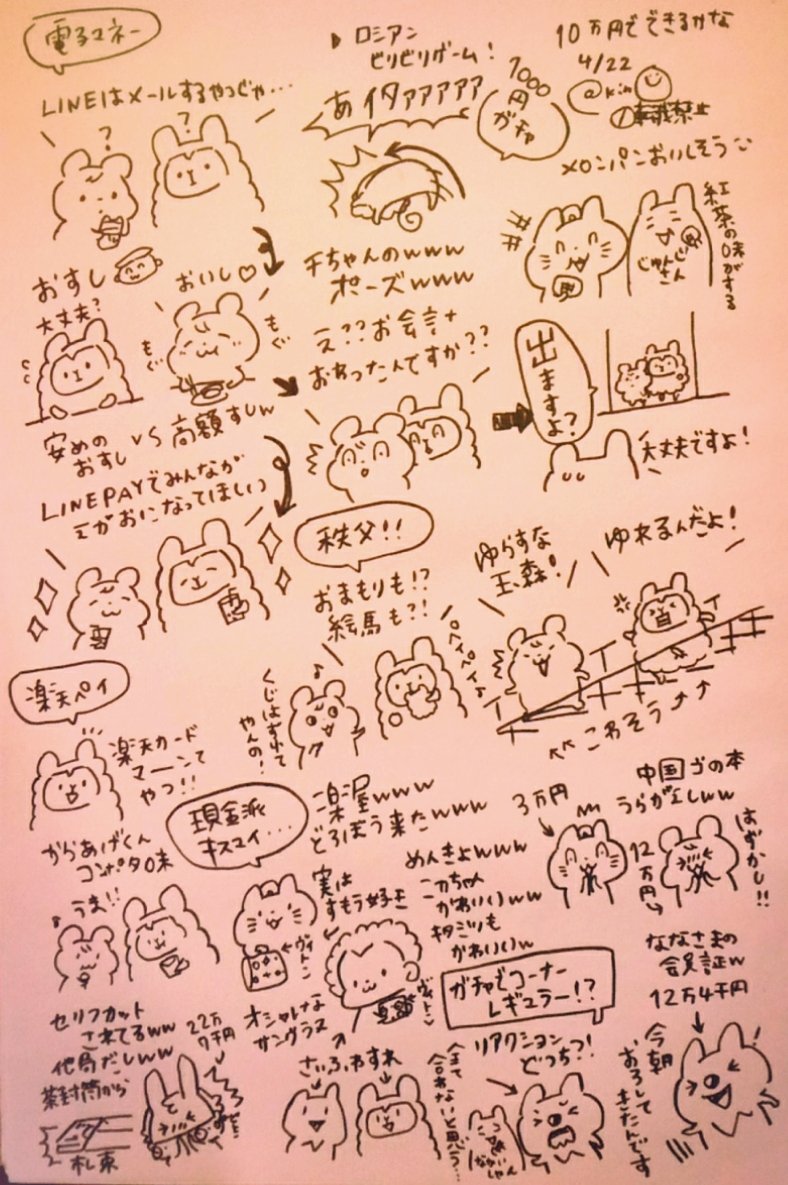 電子マネー
LINEはメールするやつじゃ…
?
?
▶ロシアン
ビリビリゲーム!
あイタァァァァァ
1000
円
ガチャ
10万円でできるかな
4/22
メロンパンおいしそう
紅茶の味がする
じゅん
さん
おすし
大丈夫?
おいし♡
もぐ
もぐ
安めの
おすし
VS
高額すしw
千ちゃんのwww
ポーズwww
え??お会計
おわったんですか??
出ますよ?
大丈夫ですよ!
LINEPAYでみんなが
えがおになってほしい
秩父!!
おまもりも!?
絵馬も?!
くじはずれて
やんの!
ペイペイ♪
ゆらすな
玉森!
ゆれるんだよ!
ころそう
楽天ペイ
楽天カード
マーンて
やつ!!
からあげくん
コンポタ味
うま!!
現金派
キスマイ…
楽屋www
どろぼう来たwww
実は
すもう好き
←ヴィトン
ヴィトン
オシャレな
サングラス
めんきょwww
ニカちゃん
かわいいww
キタミツも
かわいいw
3万円
中国ゴの本
うらがえしww
12万円
はずかし!!
ガチャピコーナー
レギュラー!?
ななさまの
会員証w
12万4千円
今朝
おろして
きたんです
セリフカット
されてるww
他局だしww
茶封筒から
札束
22万
9千円
さいふわすれ
リアクション
どっち?!
全て
合わないと思う…